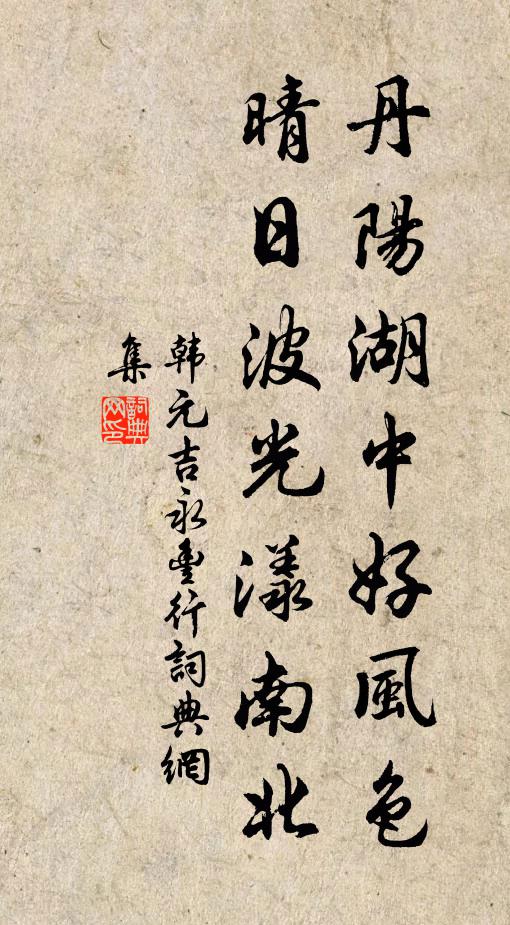 丹陽湖中好風色
晴日波光漾南北
韩元吉永豐行詞典網
集
詞典
网印